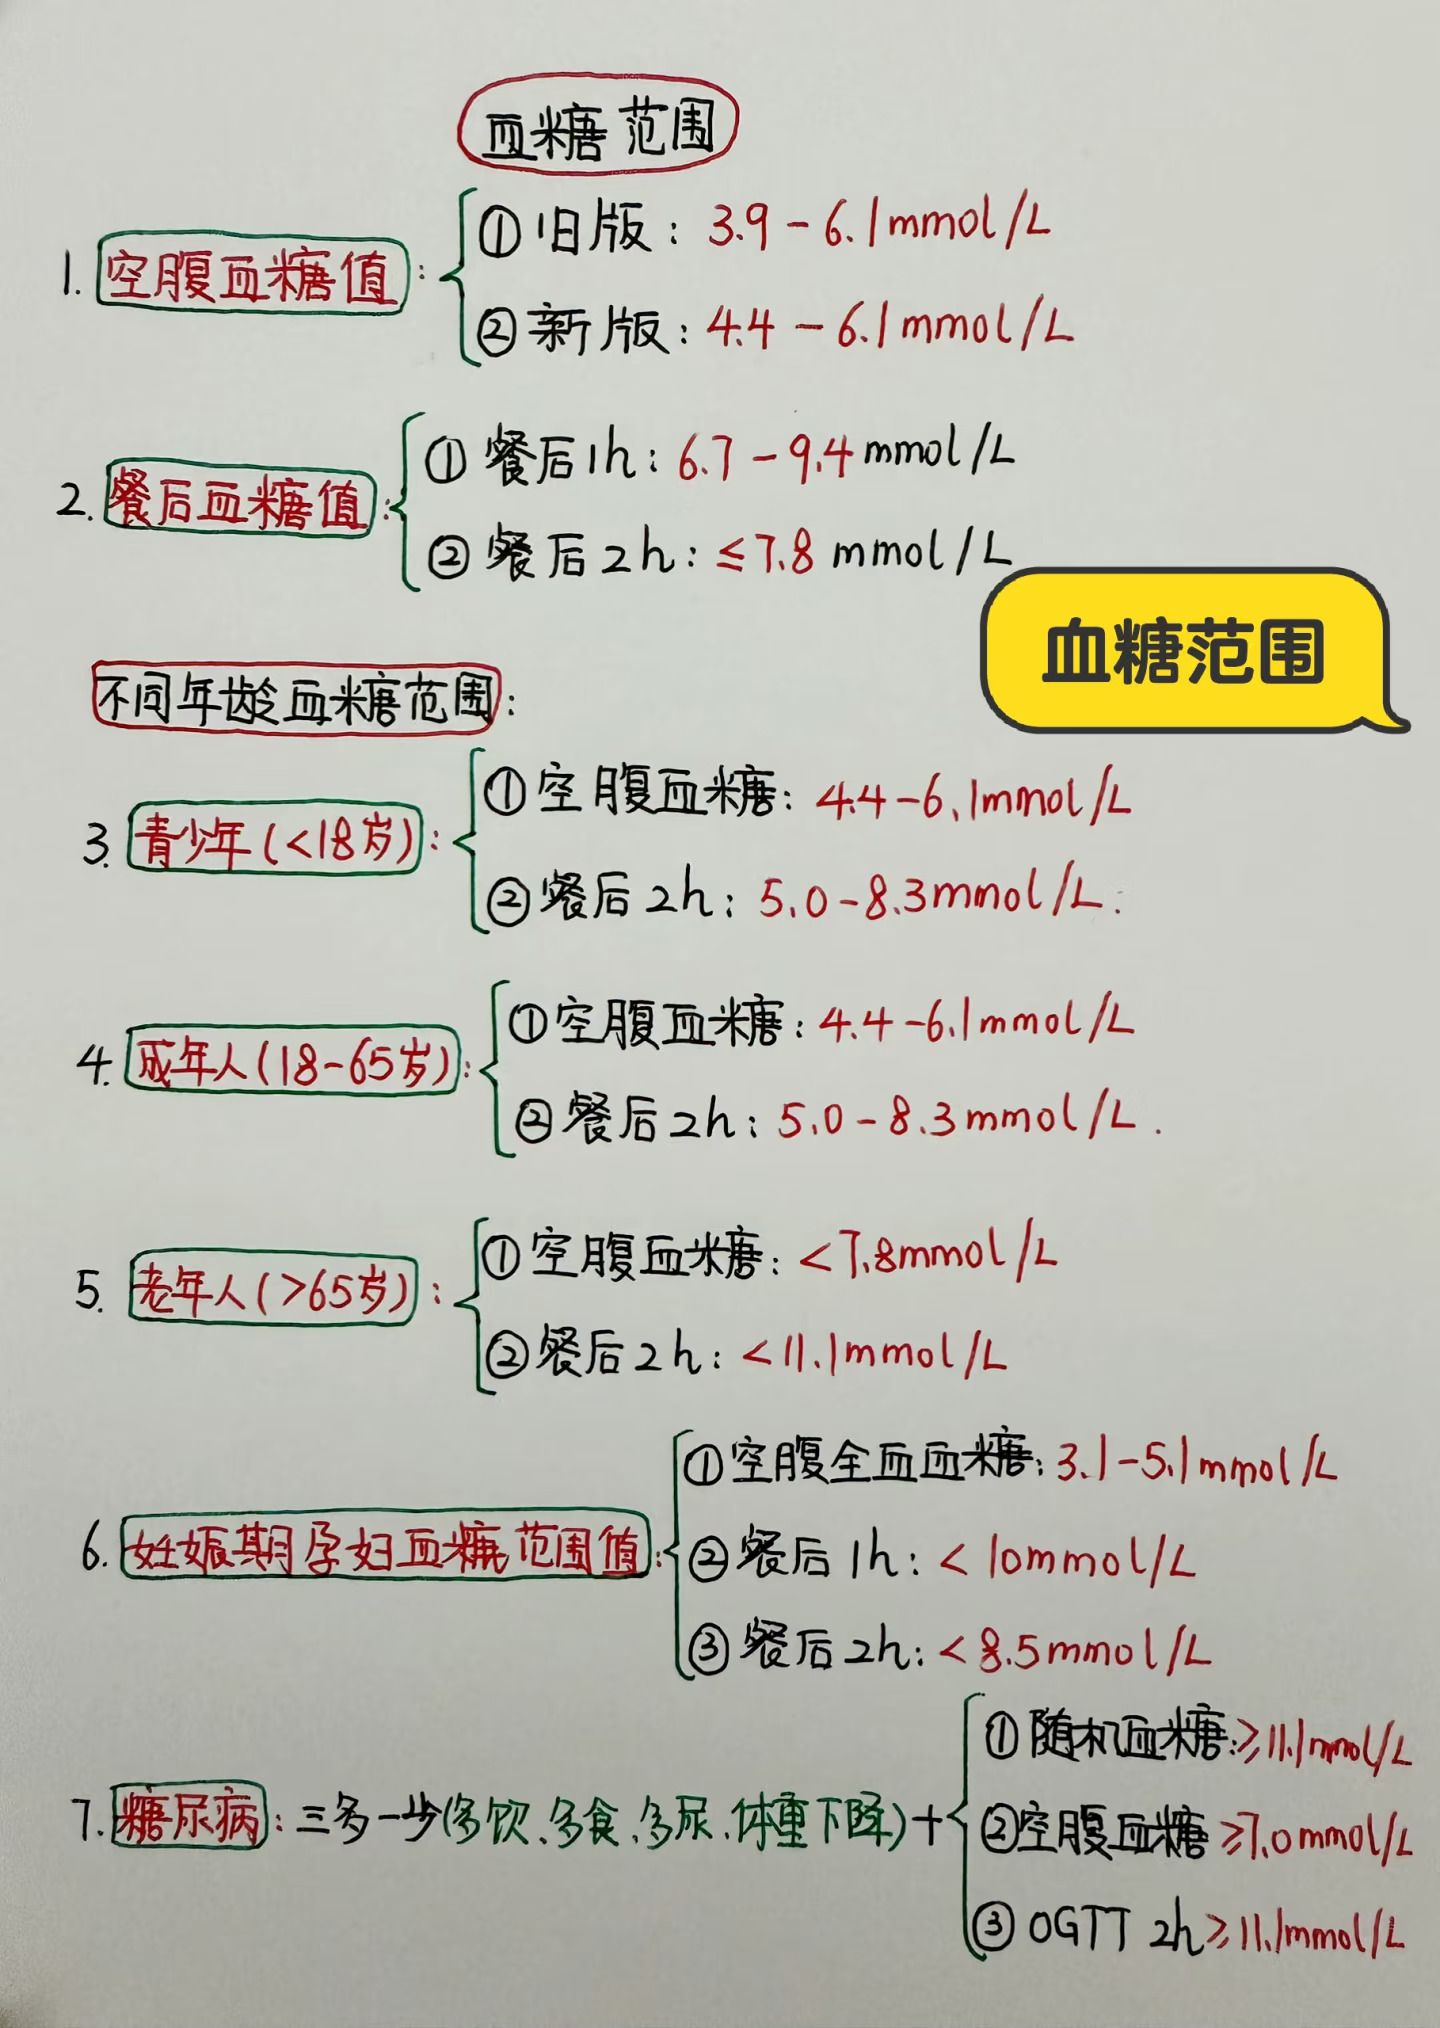 血糖范围
1. 空腹血糖值:
① 旧版: 3.9-6.1mmol/L
② 新版: 4.4-6.1mmol/L
2. 餐后血糖值:
① 餐后1h: 6.7-9.4mmol/L
② 餐后2h: ≤7.8 mmol/L
血糖范围
不同年龄血糖范围:
3. 青少年(<18岁):
① 空腹血糖: 4.4-6.1mmol/L
② 餐后2h: 5.0-8.3mmol/L
4. 成年人(18-65岁):
① 空腹血糖: 4.4-6.1mmol/L
② 餐后2h: 5.0-8.3mmol/L.
5. 老年人(>65岁):
① 空腹血糖: <7.8mmol/L
② 餐后2h: <11.1mmol/L
6. 妊娠期孕妇血糖范围值:
① 空腹全血血糖: 3.1-5.1mmol/L
② 餐后1h: <10mmol/L
③ 餐后2h: <8.5mmol/L
7. 糖尿病: 三多一少(多饮、多食、多尿、体重下降)+
① 随机血糖: ≥11.1mmol/L
② 空腹血糖 ≥7.0mmol/L
③ OGTT 2h≥11.1mmol/L